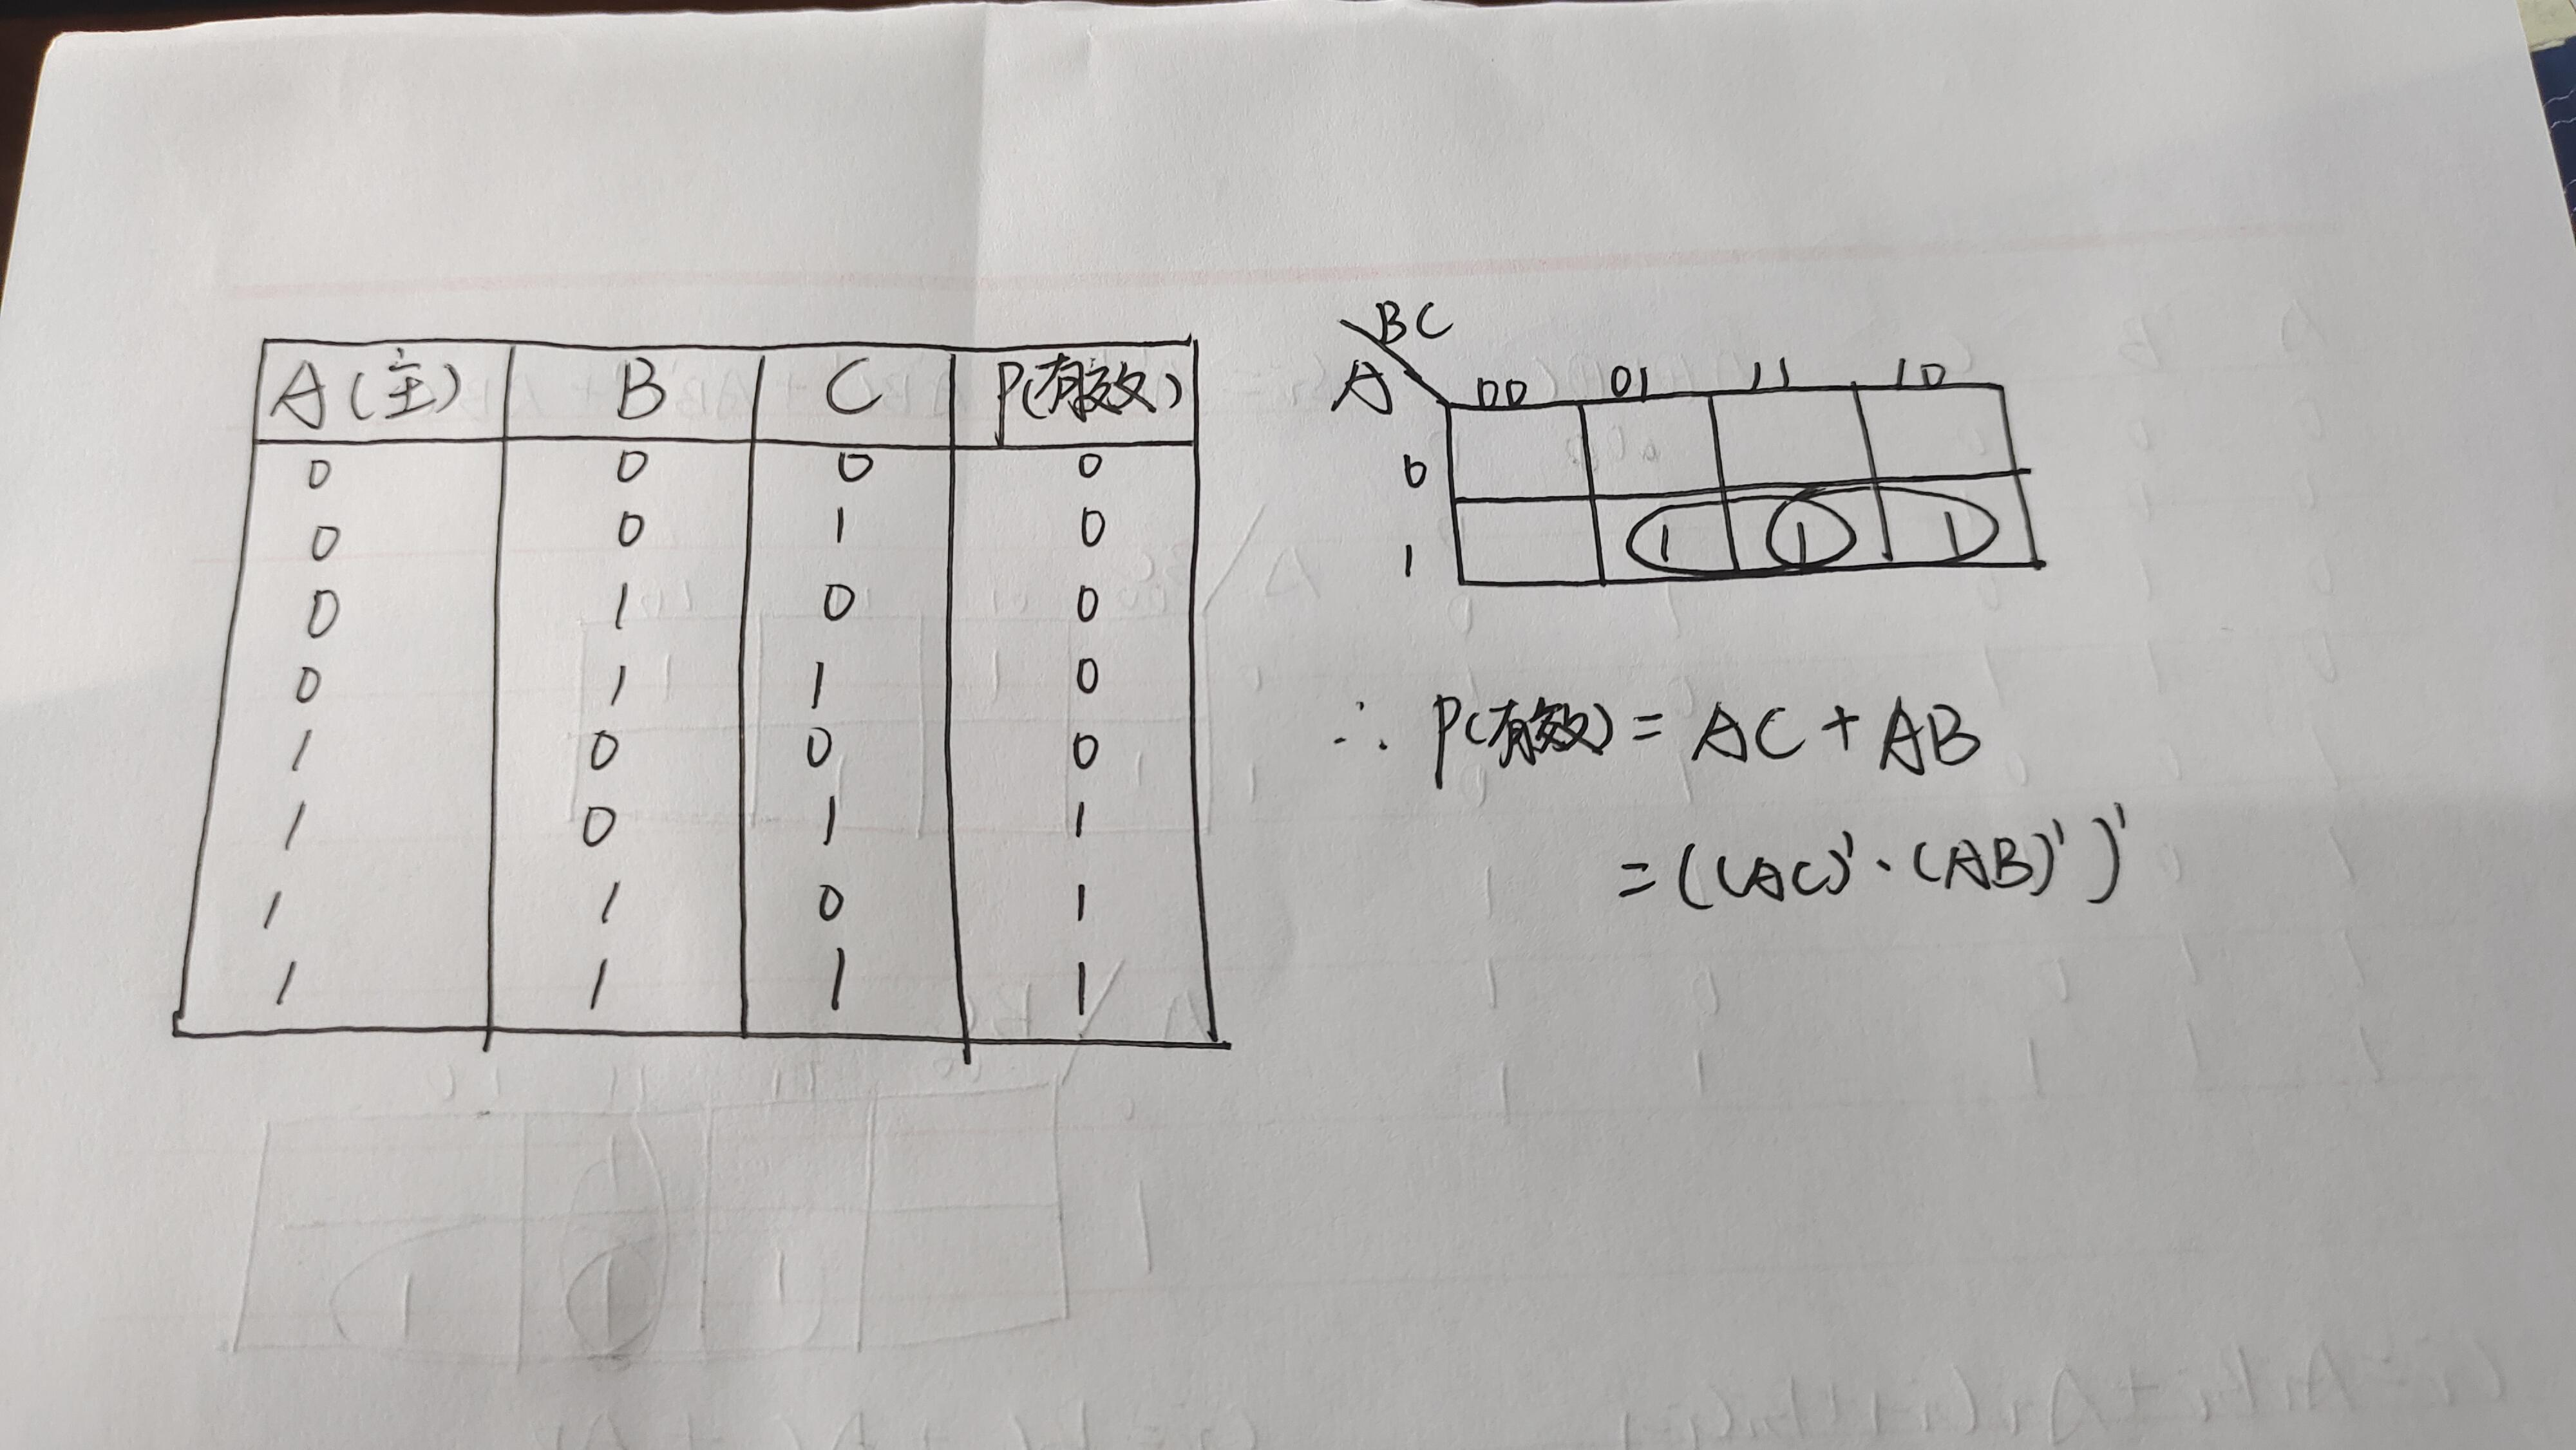 A(主) B C P(有效)
0 0 0 0
0 0 1 0
0 1 0 0
0 1 1 0
1 0 0 0
1 0 1 1
1 1 0 1
1 1 1 1
BC
A 00 01 11 10
0
1 1 1 1
∴ P(有效) = AC + AB
= ((AC)' · (AB)')'